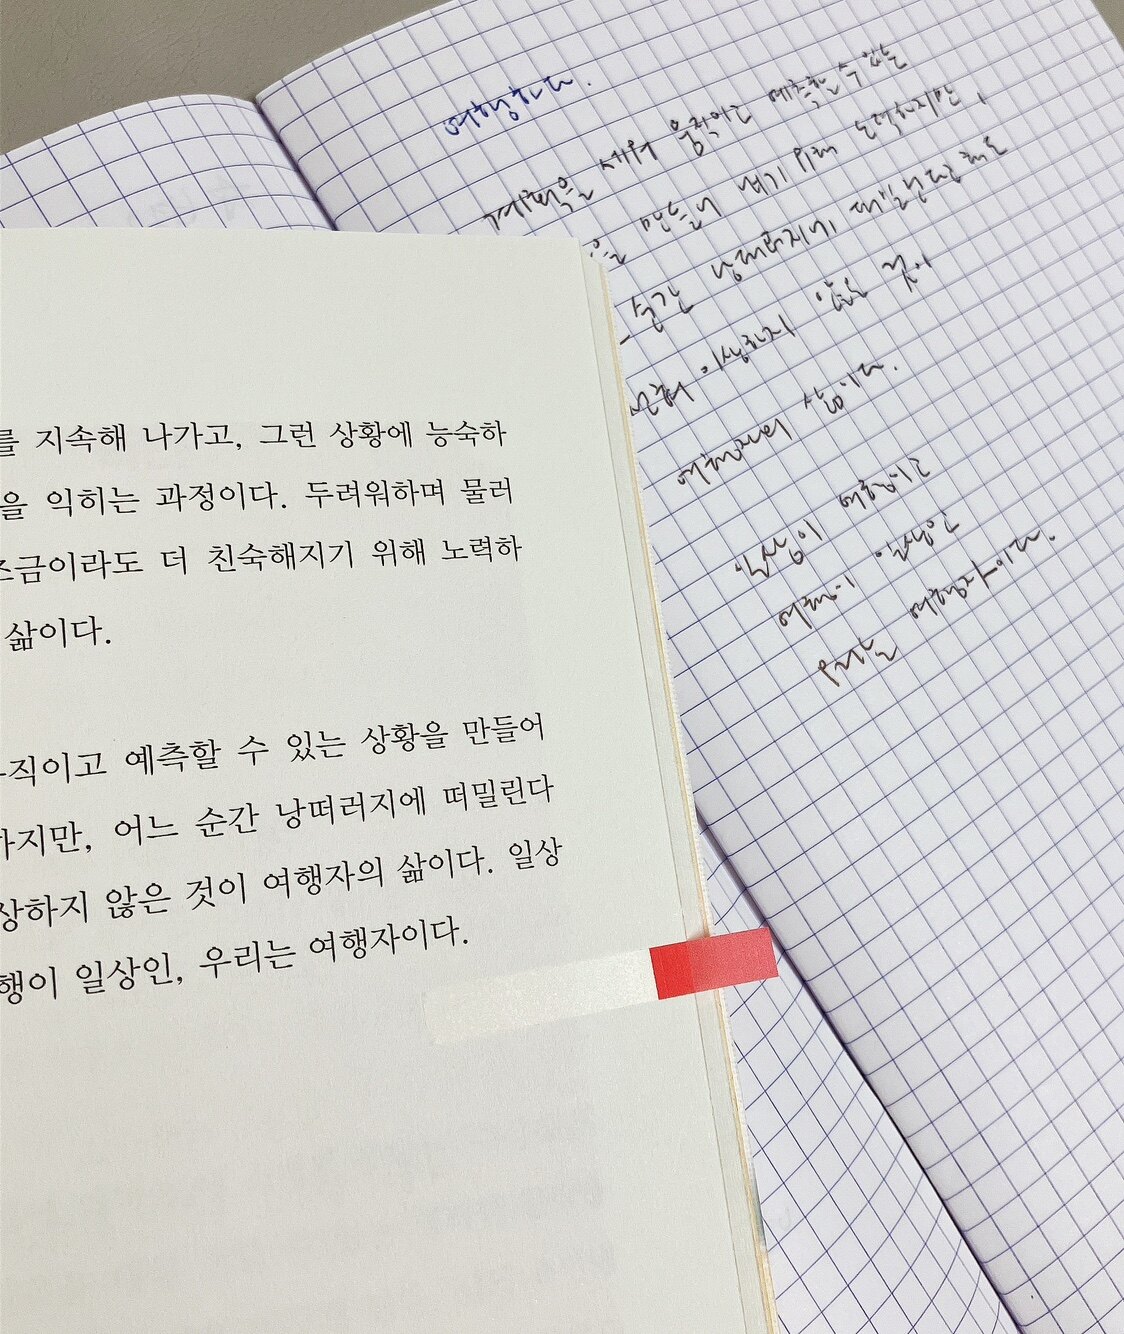 여행하다.
계획을 세워 움직이고 예측할 수 있는
을 만들어 내기 위해 노력하지만,
순간 낭떠러지에 떠밀린다 해도
전혀 이상하지 않은 것이
여행자의 삶이다.
일상이 여행이고
여행이 일상인
우리는 여행자이다.
를 지속해 나가고, 그런 상황에 능숙하
을 익히는 과정이다. 두려워하며 물러
조금이라도 더 친숙해지기 위해 노력하
삶이다.
직이고 예측할 수 있는 상황을 만들어
하지만, 어느 순간 낭떠러지에 떠밀린다
상하지 않은 것이 여행자의 삶이다. 일상
행이 일상인, 우리는 여행자이다.